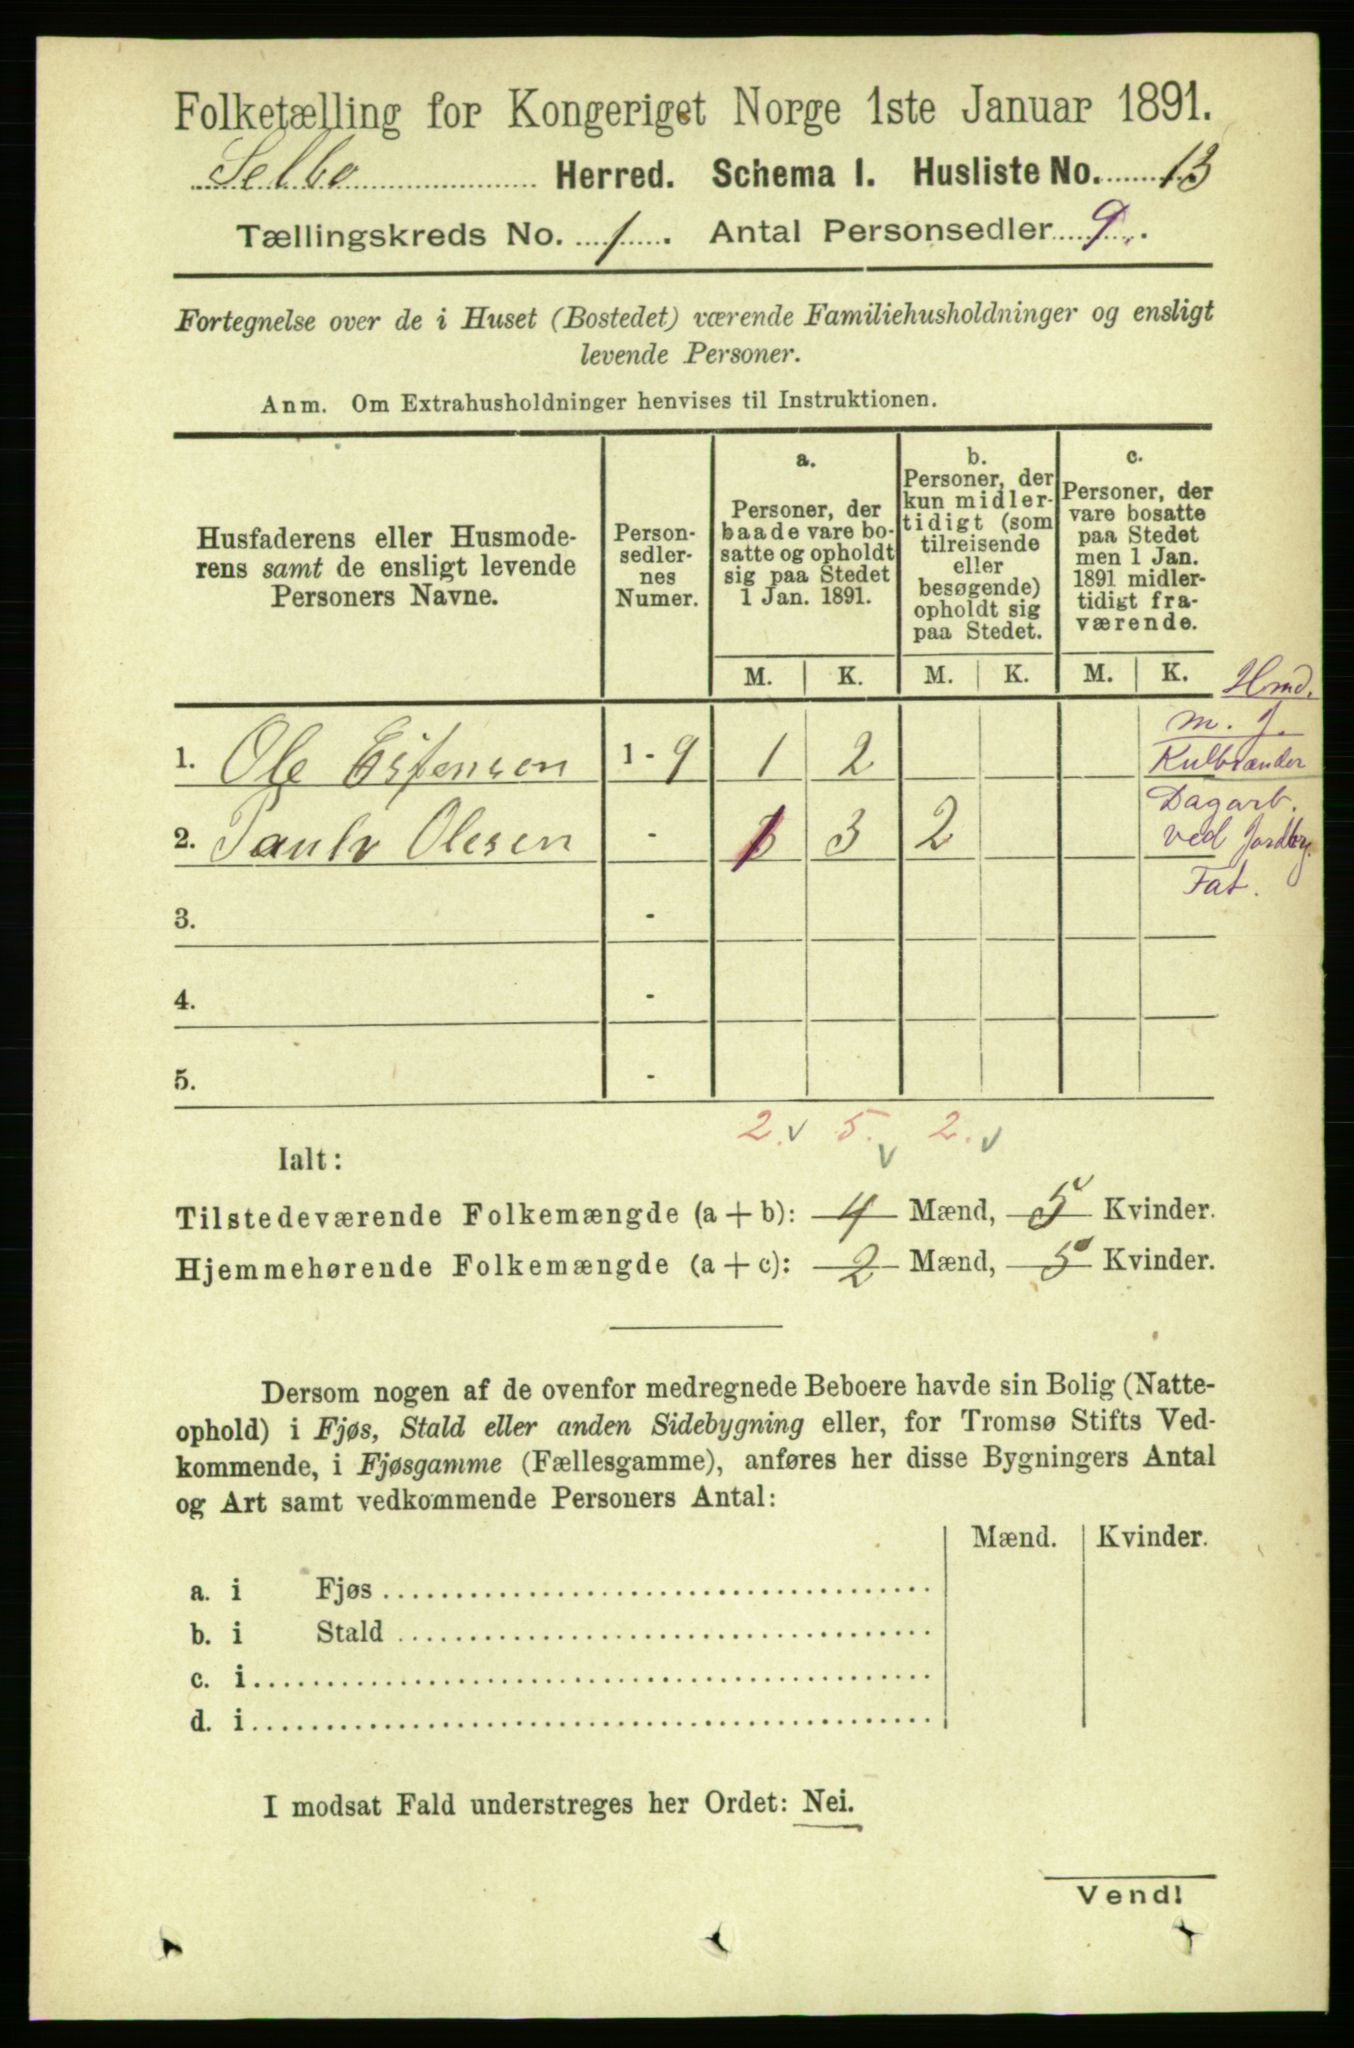 Folketælling for Kongeriget Norge 1ste Januar 1891.
Selbo Herred. Schema I. Husliste No. 13
Tællingskreds No. 1. Antal Personsedler 9.
Fortegnelse over de i Huset (Bostedet) værende Familiehusholdninger og ensligt
levende Personer.
Anm. Om Extrahusholdninger henvises til Instruktionen.
Husfaderens eller Husmode-
rens samt de ensligt levende
Personers Navne.
Person-
sedler-
nes
Numer.
a.
Personer, der
baade vare bo-
satte og opholdt
sig paa Stedet
1 Jan. 1891.
b.
Personer, der
kun midler-
tidigt (som
tilreisende
eller
besøgende)
opholdt sig
paa Stedet.
c.
Personer, der
vare bosatte
paa Stedet
men 1 Jan.
1891 midler-
tidigt fra-
værende.
M. K. M. K. M. K.
Hmd.
m. J.
1. Ole Estensen 1 - 9 1 2
Kulbrænder
Dagarb.
2. Paul Olesen - 1 3 2
ved Jordbr.
Fat.
3. -
4. -
5. -
2. v 5. v 2. v
Ialt:
Tilstedeværende Folkemængde (a + b): 4 Mænd, 5 Kvinder.
Hjemmehørende Folkemængde (a + c): 2 Mænd, 5 Kvinder.
Dersom nogen af de ovenfor medregnede Beboere havde sin Bolig (Natte-
ophold) i Fjøs, Stald eller anden Sidebygning eller, for Tromsø Stifts Ved-
kommende, i Fjøsgamme (Fællesgamme), anføres her disse Bygningers Antal
og Art samt vedkommende Personers Antal:
Mænd. Kvinder.
a. i Fjøs
b. i Stald
c. i
d. i
I modsat Fald understreges her Ordet: Nei.
Vend!